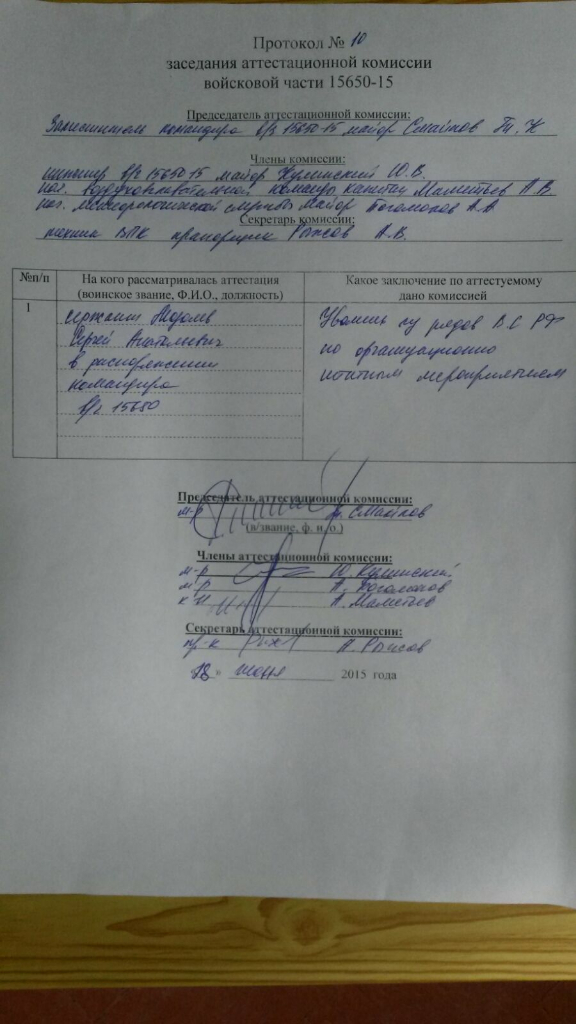 Протокол № 10
заседания аттестационной комиссии
войсковой части 15650-15
Председатель аттестационной комиссии:
Заместитель командира в/ч 15650-15 майор Смайков Т. Н
Члены комиссии:
инженер в/ч 15650-15 майор Кулинский Ю.В.
нач. команды капитан Маметьев А.В.
нач. метеорологической службы майор Богомолов А.А
Секретарь комиссии:
техник прапорщик Рыжов А.В.
№п/п
На кого рассматривалась аттестация
(воинское звание, Ф.И.О., должность)
Какое заключение по аттестуемому
дано комиссией
1
сержант
Сергей Анатольевич
в распоряжении
командира
в/ч 15650
Уволить из рядов ВС РФ
по организационно
штатным мероприятиям
Председатель аттестационной комиссии:
м-р Смайков
(в/звание, ф. и. о.)
Члены аттестационной комиссии:
м-р Ю. Кулинский
м-р А. Богомолов
к-н А. Маметьев
Секретарь аттестационной комиссии:
пр-к А. Рыжов
18 » июня 2015 года